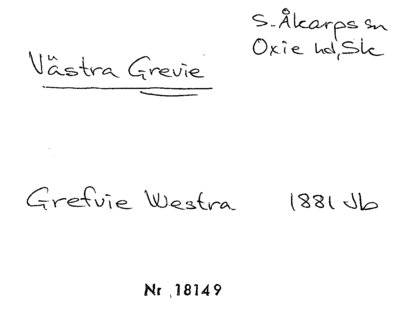 S. Åkarps sn
Oxie hd, Sk
Västra Grevie
Grefvie Westra 1881 Jb
Nr 18149